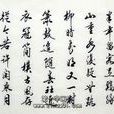 豐年留客足雞豚
山重水複疑無路
柳暗花明又一村
簫鼓追隨春社近
衣冠簡樸古風存
從今若許閒乘月